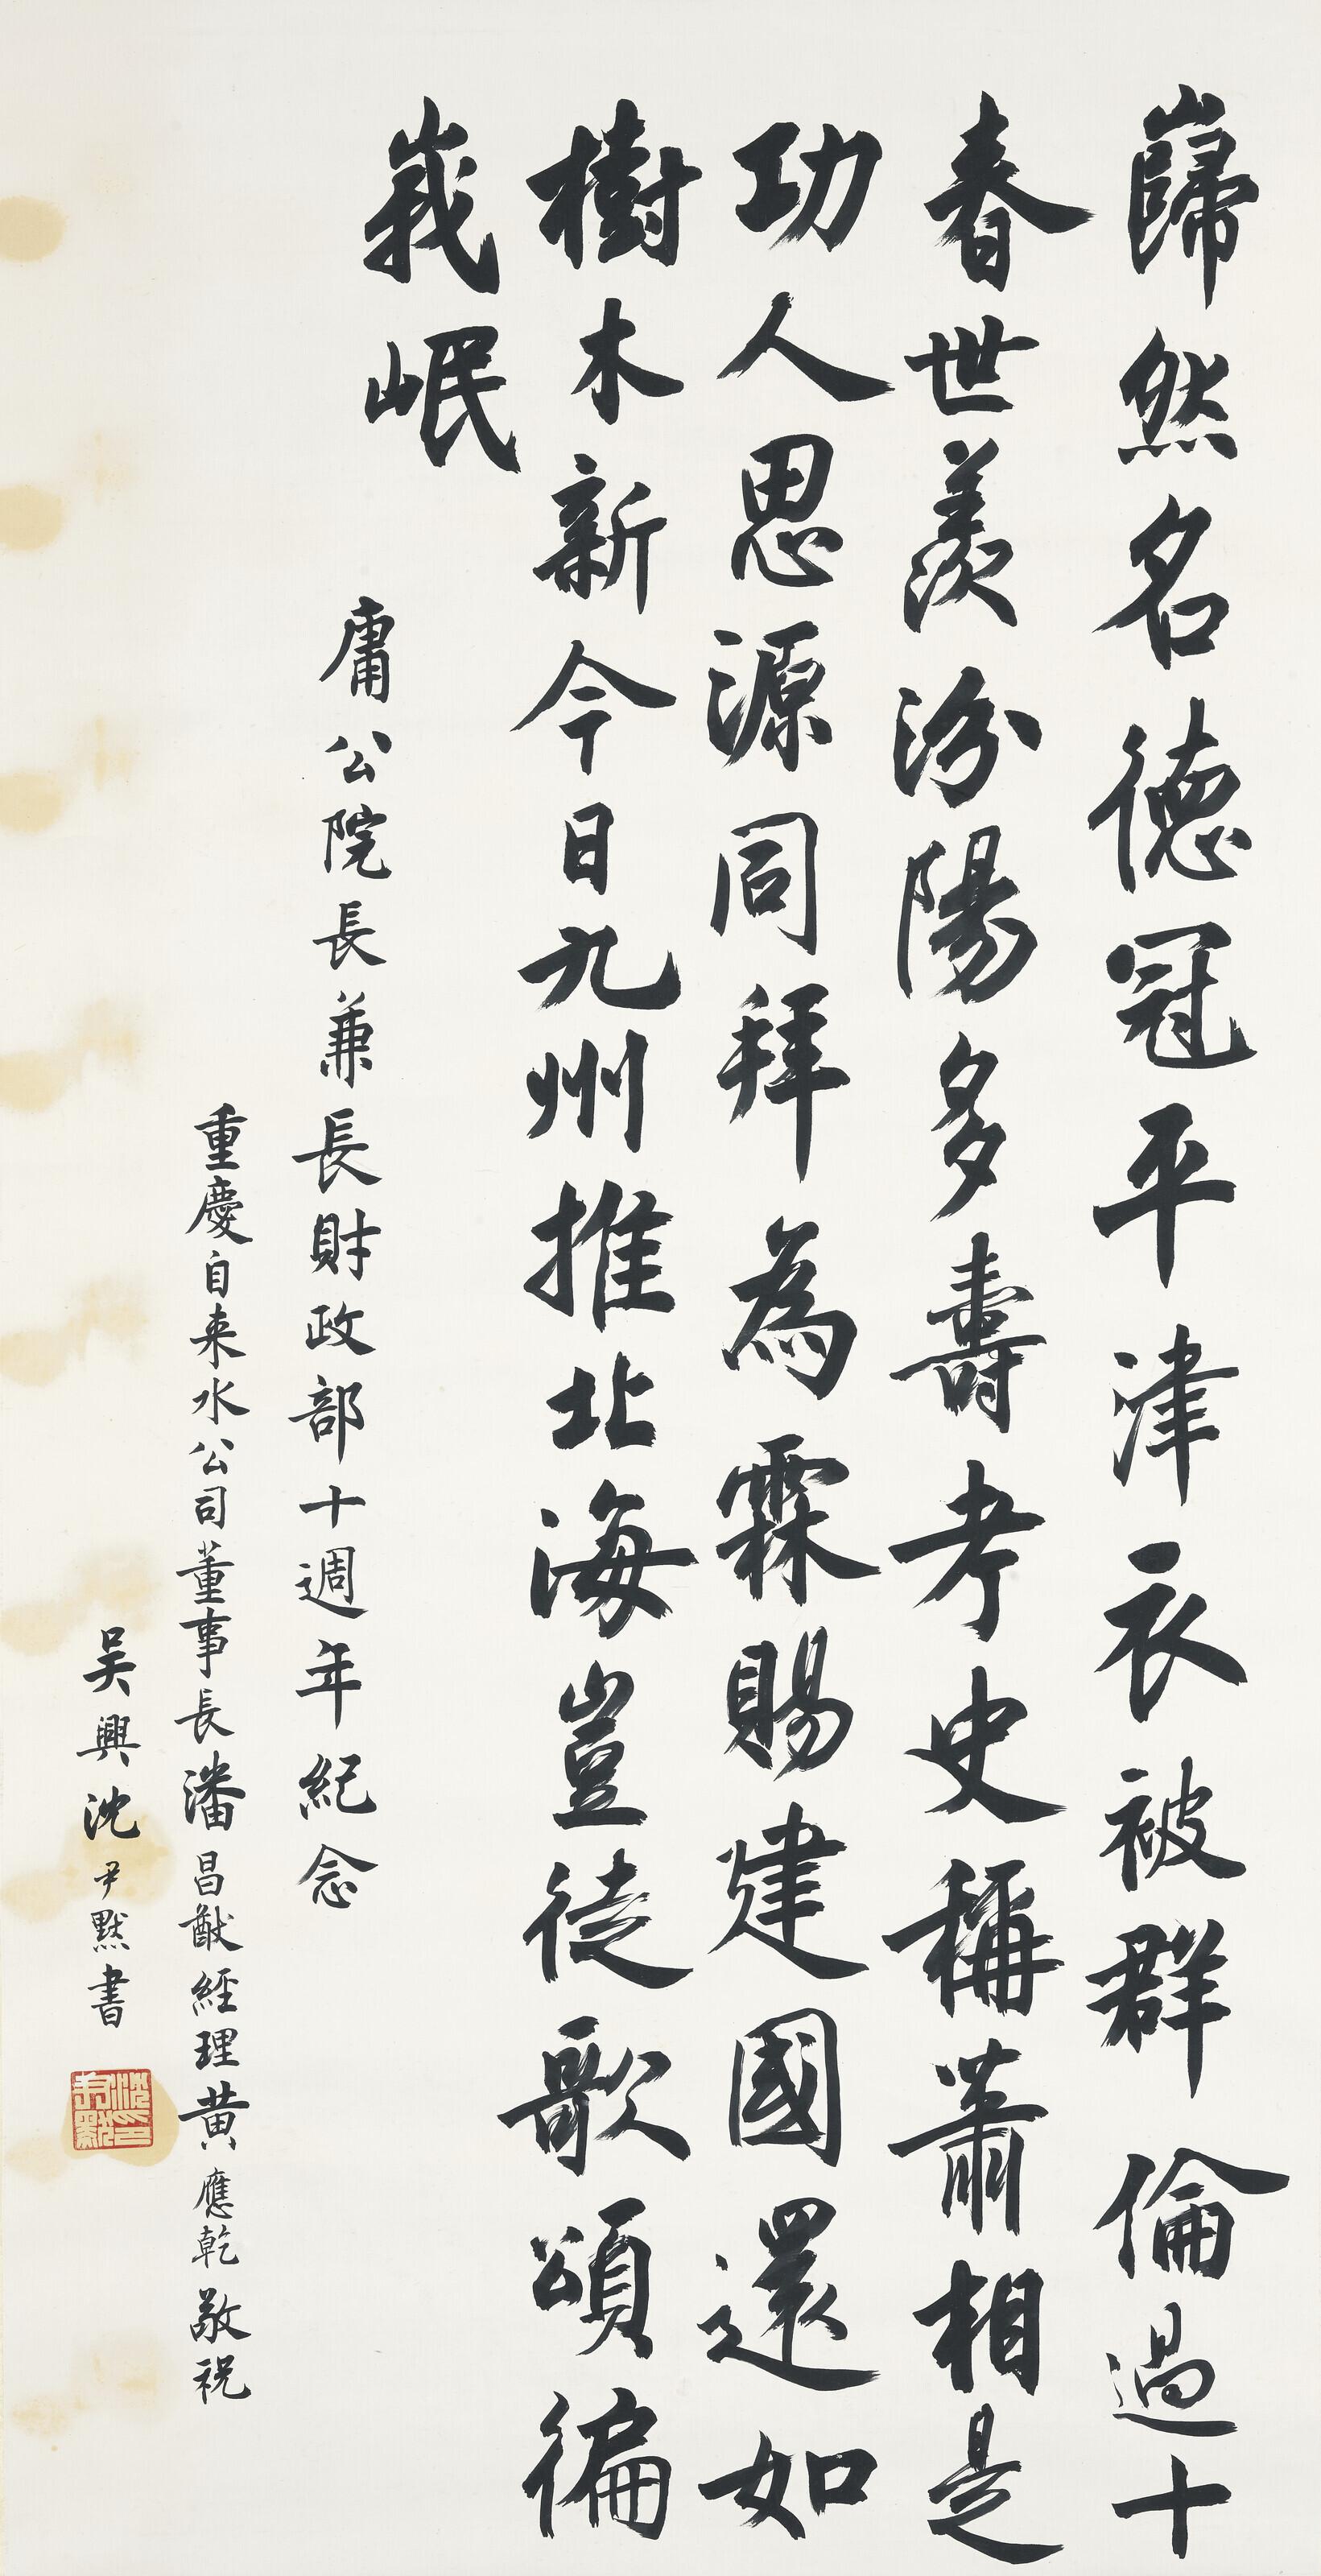 巋然名德冠平津衣被群倫過十
春世羨汾陽多壽考史稱蕭相是
功人思源同拜為霖賜建國還如
樹木新今日九州推北海豈徒歌頌徧
峩岷
庸公院長兼長財政部十週年紀念
重慶自来水公司董事長潘昌猷經理黃應乾敬祝
吴興沈尹默書
沈尹默印